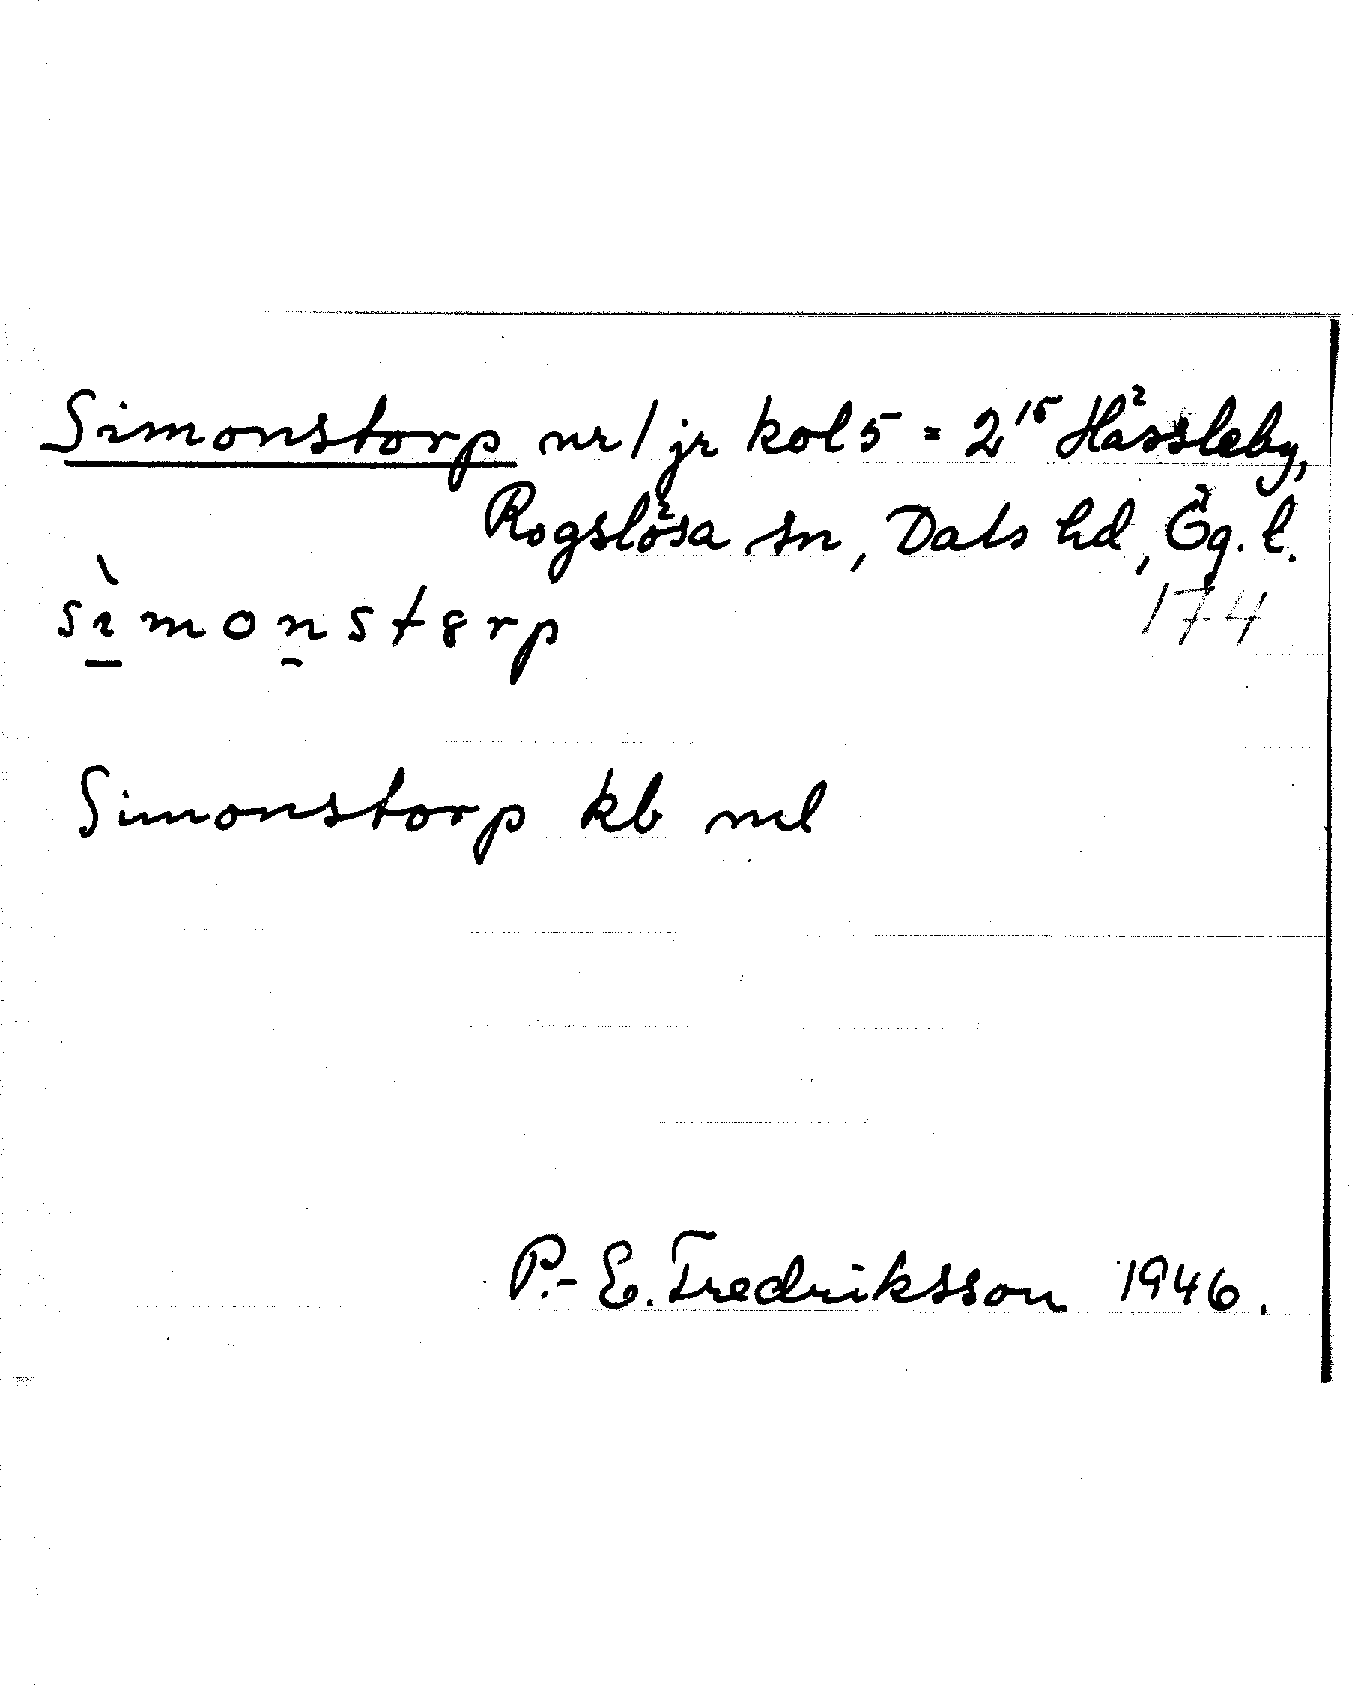 Simonstorp nr 1 jr kol 5 = 2¹⁵ Hässleby,
Rogslösa sn, Dals hd, Ög. l.
sìmonst8rp 174
Simonstorp kb ml
P.-E. Fredriksson 1946.